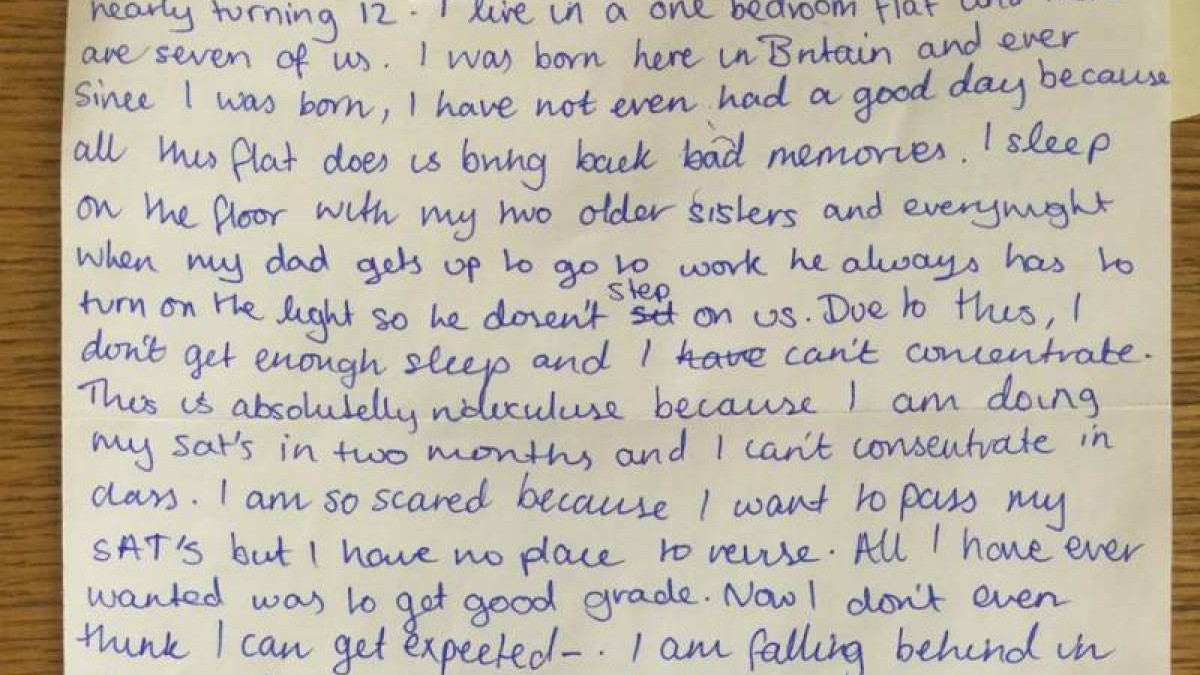 nearly turning 12. I live in a one bedroom flat and
are seven of us. I was born here in Britain and ever
Since I was born, I have not even had a good day because
all this flat does is bring back bad memories. I sleep
on the floor with my two older sisters and everynight
when my dad gets up to go to work he always has to
turn on the light so he dosen't step on us. Due to this, I
don't get enough sleep and I have can't concentrate.
This is absolutelly rideculuse because I am doing
my sat's in two months and I can't consentrate in
class. I am so scared because I want to pass my
SAT's but I have no place to revise. All I have ever
wanted was to get good grade. Now I don't even
think I can get expected-. I am falling behind in